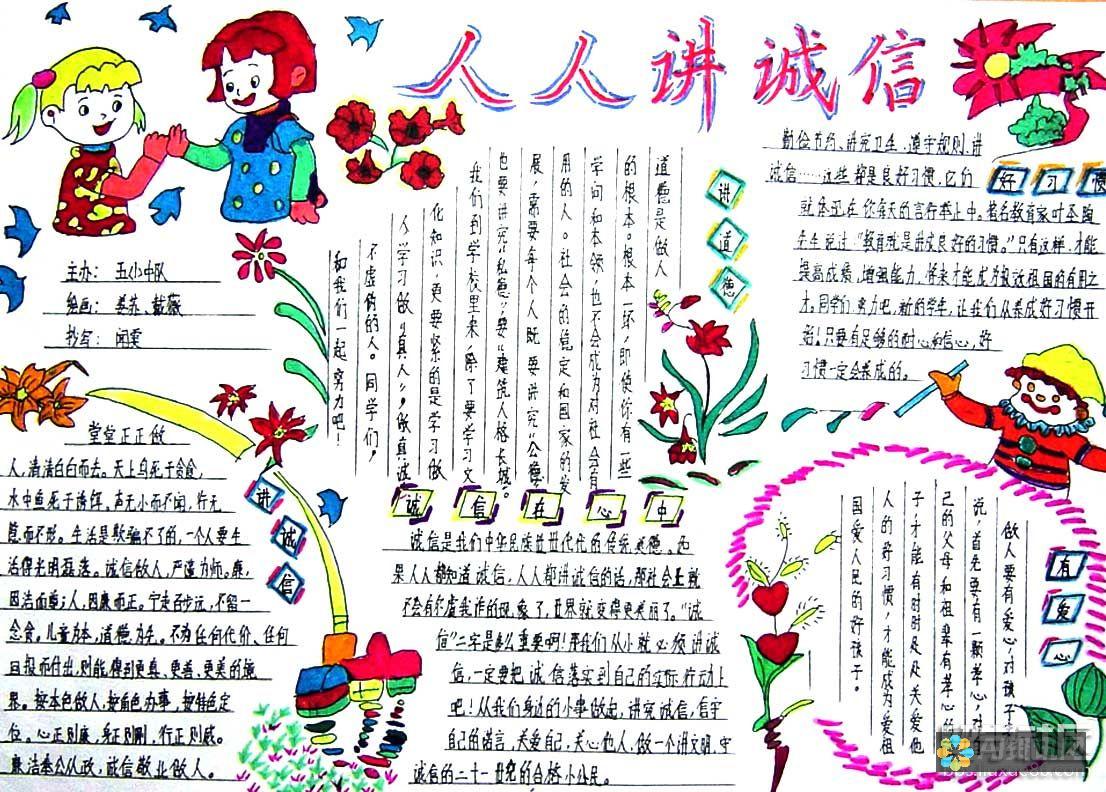 人人讲诚信
主办：五小中队
绘画：姜苏、戴薇
抄写：闻雯
讲道德
道德是做人
的根本。根本一坏，即使你有一些
学问和本领，也不会成为对社会有
用的人。社会的稳定和国家的发
展，需要每个人既要讲究“公德”
也要讲究“私德”，要“建筑人格长城”。
我们到学校里来，除了要学习文
化知识，更要紧的是学习做
人学习做“真人”，做真诚
不虚伪的人。同学们，
和我们一起努力吧！
好习惯
勤俭节约、讲究卫生、遵守规则、讲
诚信……这些都是良好习惯，它们
就体现在你每天的言行举止中。著名教育家叶圣陶
先生说过“教育就是讲良好的习惯。”只有这样，才能
提高成绩，增强能力，将来才能成为报效祖国的有用之
才。同学们努力吧，新的学年，让我们从养成好习惯开
始！只要有足够的耐心和信心，好
习惯一定会养成的。
讲诚信
堂堂正正做
人，清清白白而去。天上鸟死于贪食，
水中鱼死于诱饵。声无小而不闻，行无
隐而不形。生活是欺骗不了的，一个人要生
活得光明磊落。诚信做人，严谨为师。廉，
因洁而 人，因廉而正。宁走百步远，不留一
念贪。儿童为本，道德为先。不为任何代价、任何
回报而付出，则能得到更真、更善、更美的境
界。按本色做人，按角色办事，按特色定
位。心正则廉，身正则刚，行正则威。
廉洁奉公从政，诚信敬业做人。
诚信在心中
诚信是我们中华民族世世代代的传统美德。如
果人人都知道诚信，人人都讲诚信的话，那社会上就
不会有尔虞我诈的现象了，世界就变得更美丽了。“诚
信”二字是多么重要啊！那我们从小就必须讲诚
信，一定要把诚信落实到自己的实际行动上
吧！从我们身边的小事做起，讲究诚信，信守
自己的诺言，关爱自己，关心他人，做一个讲文明，守
诚信的二十一世纪的合格小公民。
有爱心
做人要有爱心，对孩子
说，首先要有一颗孝心，对
己的父母和祖辈有孝心的
子才能有时时处处关爱他
人的好习惯，才能成为爱祖
国爱人民的好孩子。